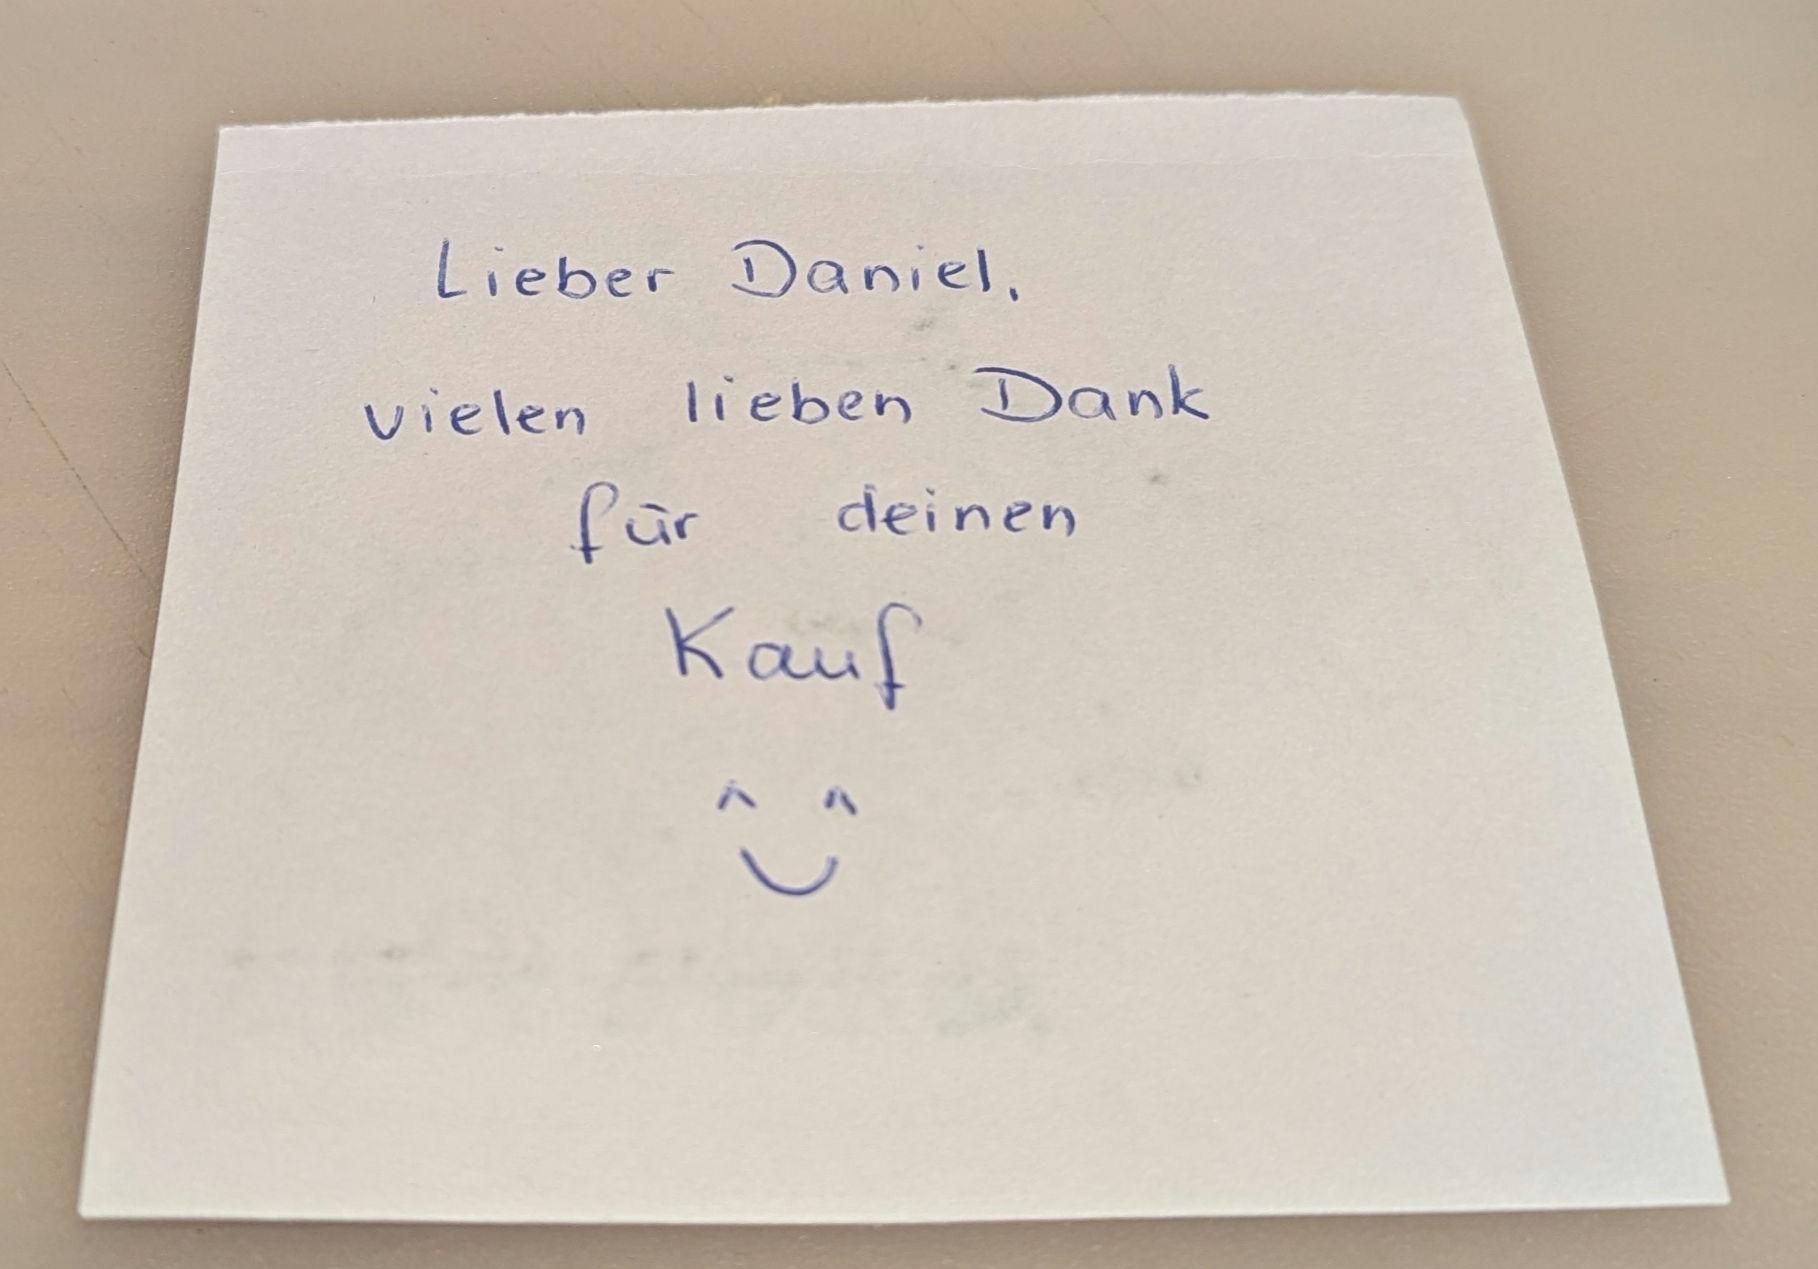 Lieber Daniel,
vielen lieben Dank
für deinen
Kauf